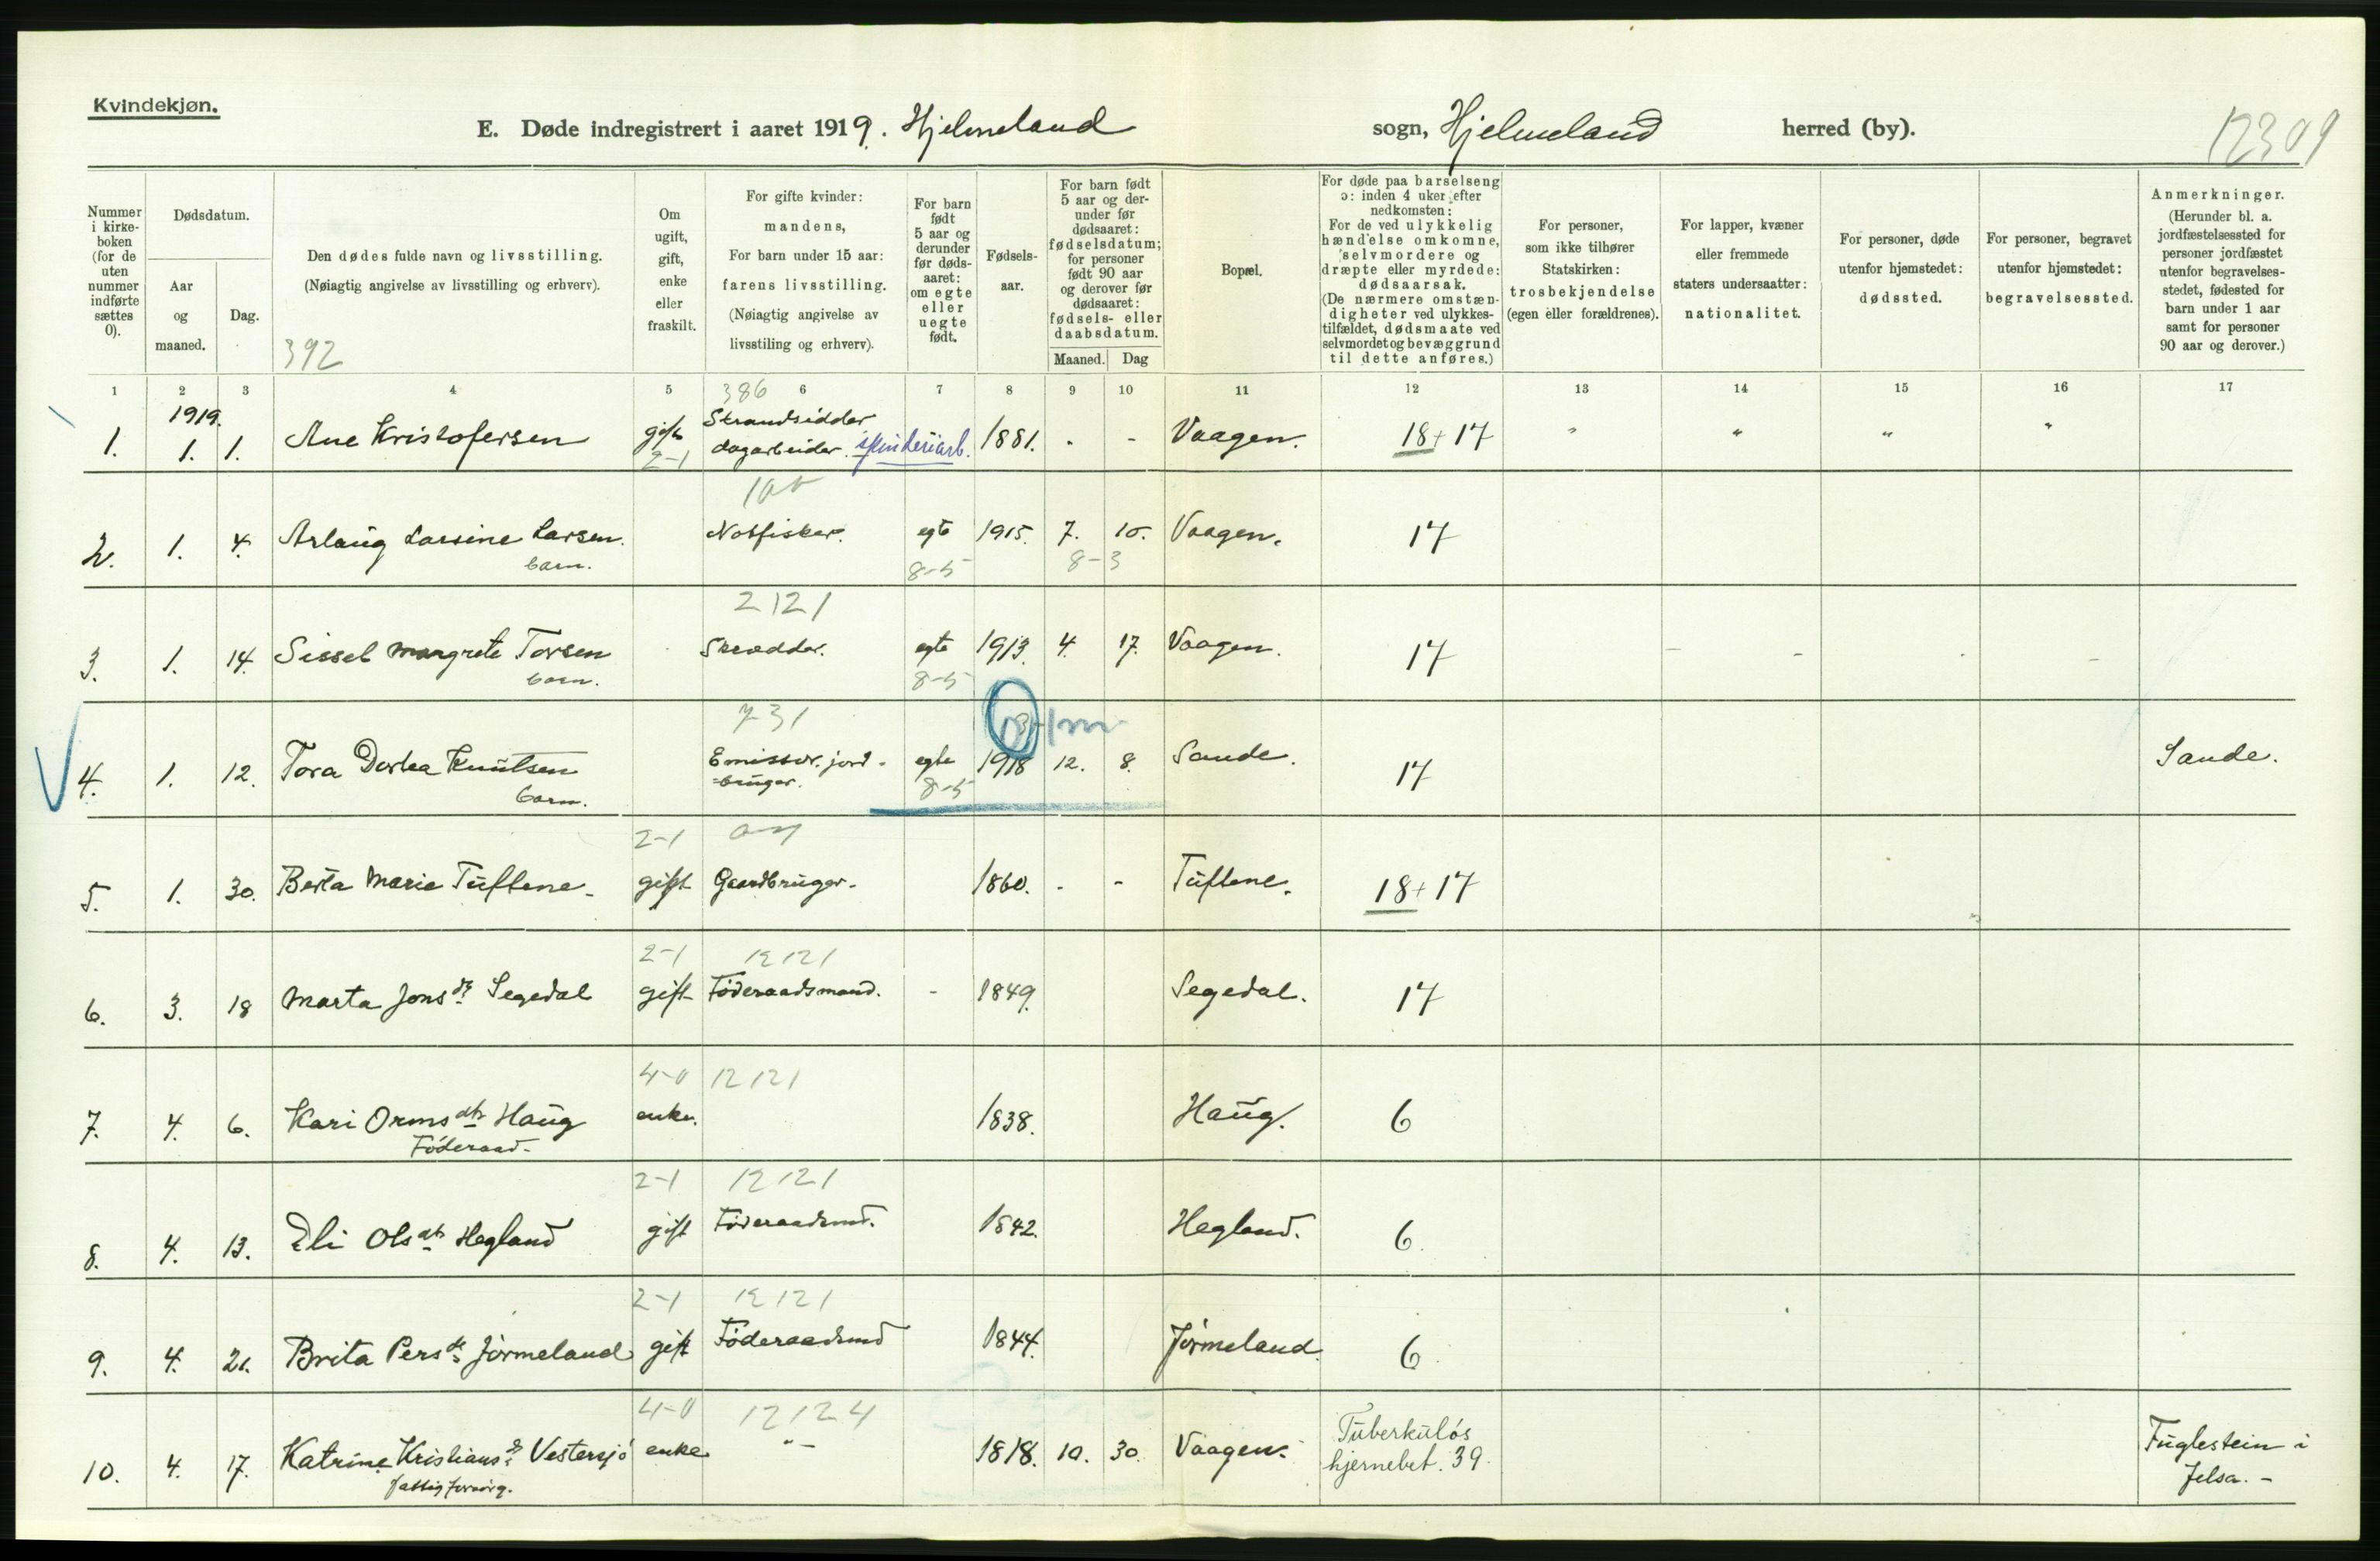 Kvindekjøn.
E. Døde indregistrert i aaret 1919. Hjelmeland sogn, Hjelmeland herred (by).
12309
Nummer i kirke-boken (for de uten nummer indførte sættes 0).
Dødsdatum.
Aar og maaned.
Dag.
Den dødes fulde navn og livsstilling.
(Nøiagtig angivelse av livsstilling og erhverv).
392
Om ugift, gift, enke eller fraskilt.
For gifte kvinder: mandens,
For barn under 15 aar: farens livsstilling.
(Nøiagtig angivelse av livsstiling og erhverv).
For barn født 5 aar og derunder før døds-aaret: om egte eller uegte født.
Fødsels-aar.
For barn født 5 aar og der-under før dødsaaret: fødselsdatum; for personer født 90 aar og derover før dødsaaret: fødsels- eller daabsdatum.
Maaned. Dag
Bopæl.
For døde paa barselseng ɔ: inden 4 uker efter nedkomsten:
For de ved ulykkelig hændelse omkomne, selvmordere og dræpte eller myrdede: dødsaarsak.
(De nærmere omstæn-digheter ved ulykkes-tilfældet, dødsmaate ved selvmordet og bevæggrund til dette anføres.)
For personer, som ikke tilhører Statskirken: trosbekjendelse (egen eller forældrenes).
For lapper, kvæner eller fremmede staters undersaatter: nationalitet.
For personer, døde utenfor hjemstedet: dødssted.
For personer, begravet utenfor hjemstedet: begravelsessted.
Anmerkninger.
(Herunder bl. a. jordfæstelsessted for personer jordfæstet utenfor begravelses-stedet, fødested for barn under 1 aar samt for personer 90 aar og derover.)
1 2 3 4 5 6 7 8 9 10 11 12 13 14 15 16 17
1919. 386
1. 1. 1. Ane Kristofersen gift 2-1 Strandsidder dagarbeider. spinderiarb. 1881. . - Vaagen. 18+17 " " " "
2. 1. 4. Arlaug Larsine Larsen. Notfisker. egte 1915. 7. 10. Vaagen. 17
barn. 8-5 8-3
2121
3. 1. 14. Sissel Margrete Torsen Skrædder. egte 1913. 4. 17. Vaagen. 17 - - . -
barn. 8-5
731
4. 1. 12. Tora Dortea Knutsen Emissær. jord- egte 1918 12. 8. Sande. 17 Sande.
barn. =bruger. 8-5
2-1
5. 1. 30. Berta Marie Tuftene- gift Gaardbruger. 1860. . - Tuftene. 18+17
2-1 12121
6. 3. 18 Marta Jonsdt Segedal gift Föderaadsmand. - 1849. Segedal. 17
4-0 12121
7. 4. 6. Kari Ormsdtr Haug enke. 1838. Haug. 6
Föderaad-
2-1 12121
8. 4. 13. Eli Olsdtr Hegland gift Föderaadsmd. 1842. Hegland. 6.
2-1 12121
9. 4. 21. Brita Persdt Jörmeland gift Föderaadsmd 1844. Jörmeland. 6
4-0 12124
10. 4. 17. Katrine Kristiansdt Vestersjö enke "- 1818. 10. 30. Vaagen. Tuberkulös hjernebet. 39. Fuglestein i Jelsa. -
fattigforsörg.